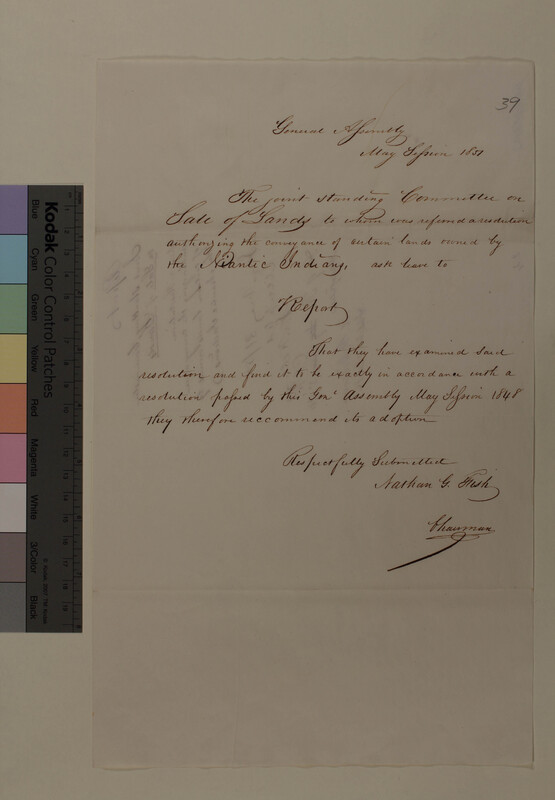 39
General Assembly
May Session 1851
The joint standing Committee on
Sale of Lands to whom was refered a resolution
authorizing the conveyance of certain lands owned by
the Niantic Indians, ask leave to
Report
That they have examined said
resolution and find it to be exactly in accordance with a
resolution passed by this Gen' Assembly May Session 1848
they therefore reccommend its adoption
Respectfully Submitted
Nathan G. Fish
Chairman
Kodak Color Control Patches
Blue Cyan Green Yellow Red Magenta White 3/Color Black